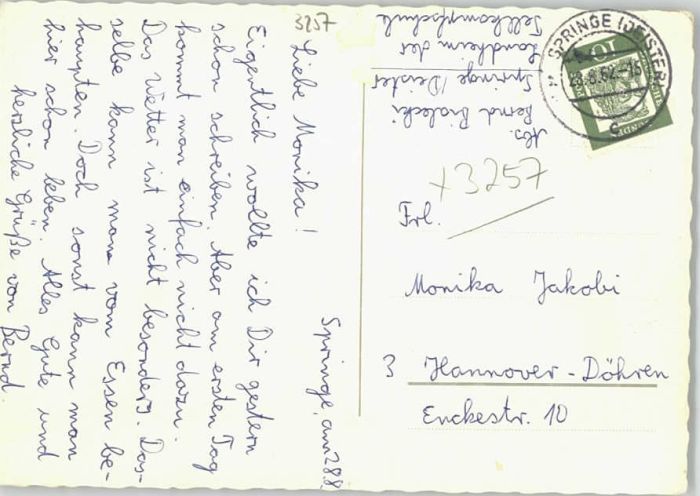 3257
Springe, am 28.8.
Liebe Monika!
Eigentlich wollte ich Dir gestern
schon schreiben. Aber am ersten Tag
kommt man einfach nicht dazu.
Das Wetter ist nicht besonders. Das-
selbe kann man vom Essen be-
haupten. Doch sonst kann man
hier schon leben. Alles Gute und
herzliche Grüße von
Bernd.
Abs.
Bernd
Springe/Deister
Landheim der
Tellkampfschule
SPRINGE (DEISTER)
28.8.62-15
10
+3257
Frl.
Monika Jakobi
3 Hannover-Döhren
Enckestr. 10